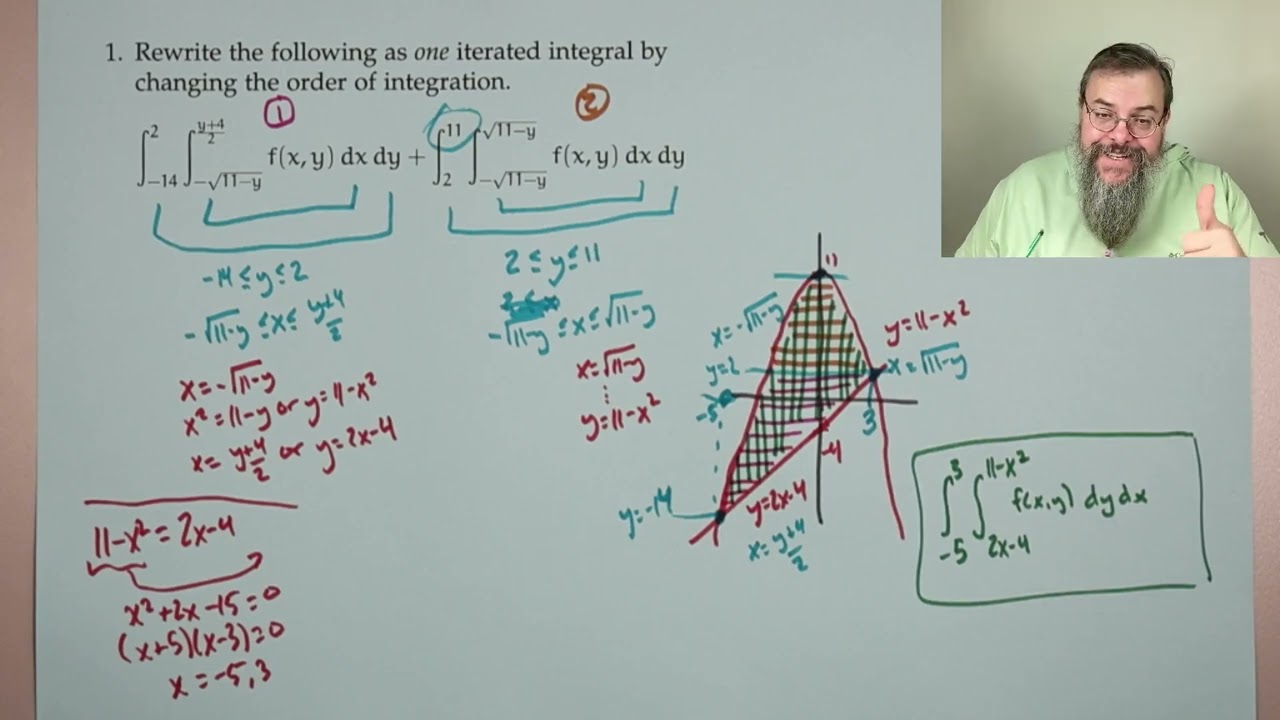 1. Rewrite the following as one iterated integral by
changing the order of integration.
① ②
∫_{-14}^{2} ∫_{-√(11-y)}^{(y+4)/2} f(x, y) dx dy + ∫_{2}^{11} ∫_{-√(11-y)}^{√(11-y)} f(x, y) dx dy
-14 ≤ y ≤ 2
-√(11-y) ≤ x ≤ (y+4)/2
x = -√(11-y)
x² = 11-y or y = 11-x²
x = (y+4)/2 or y = 2x-4
11-x² = 2x-4
x²+2x-15=0
(x+5)(x-3)=0
x = -5,3
2 ≤ y ≤ 11
-√(11-y) ≤ x ≤ √(11-y)
x = √(11-y)
⋮
y = 11-x²
11
x = -√(11-y)
y = 11-x²
y = 2
x = √(11-y)
-5
3
-4
y = -14
y = 2x-4
x = (y+4)/2
∫_{-5}^{3} ∫_{2x-4}^{11-x²} f(x,y) dy dx